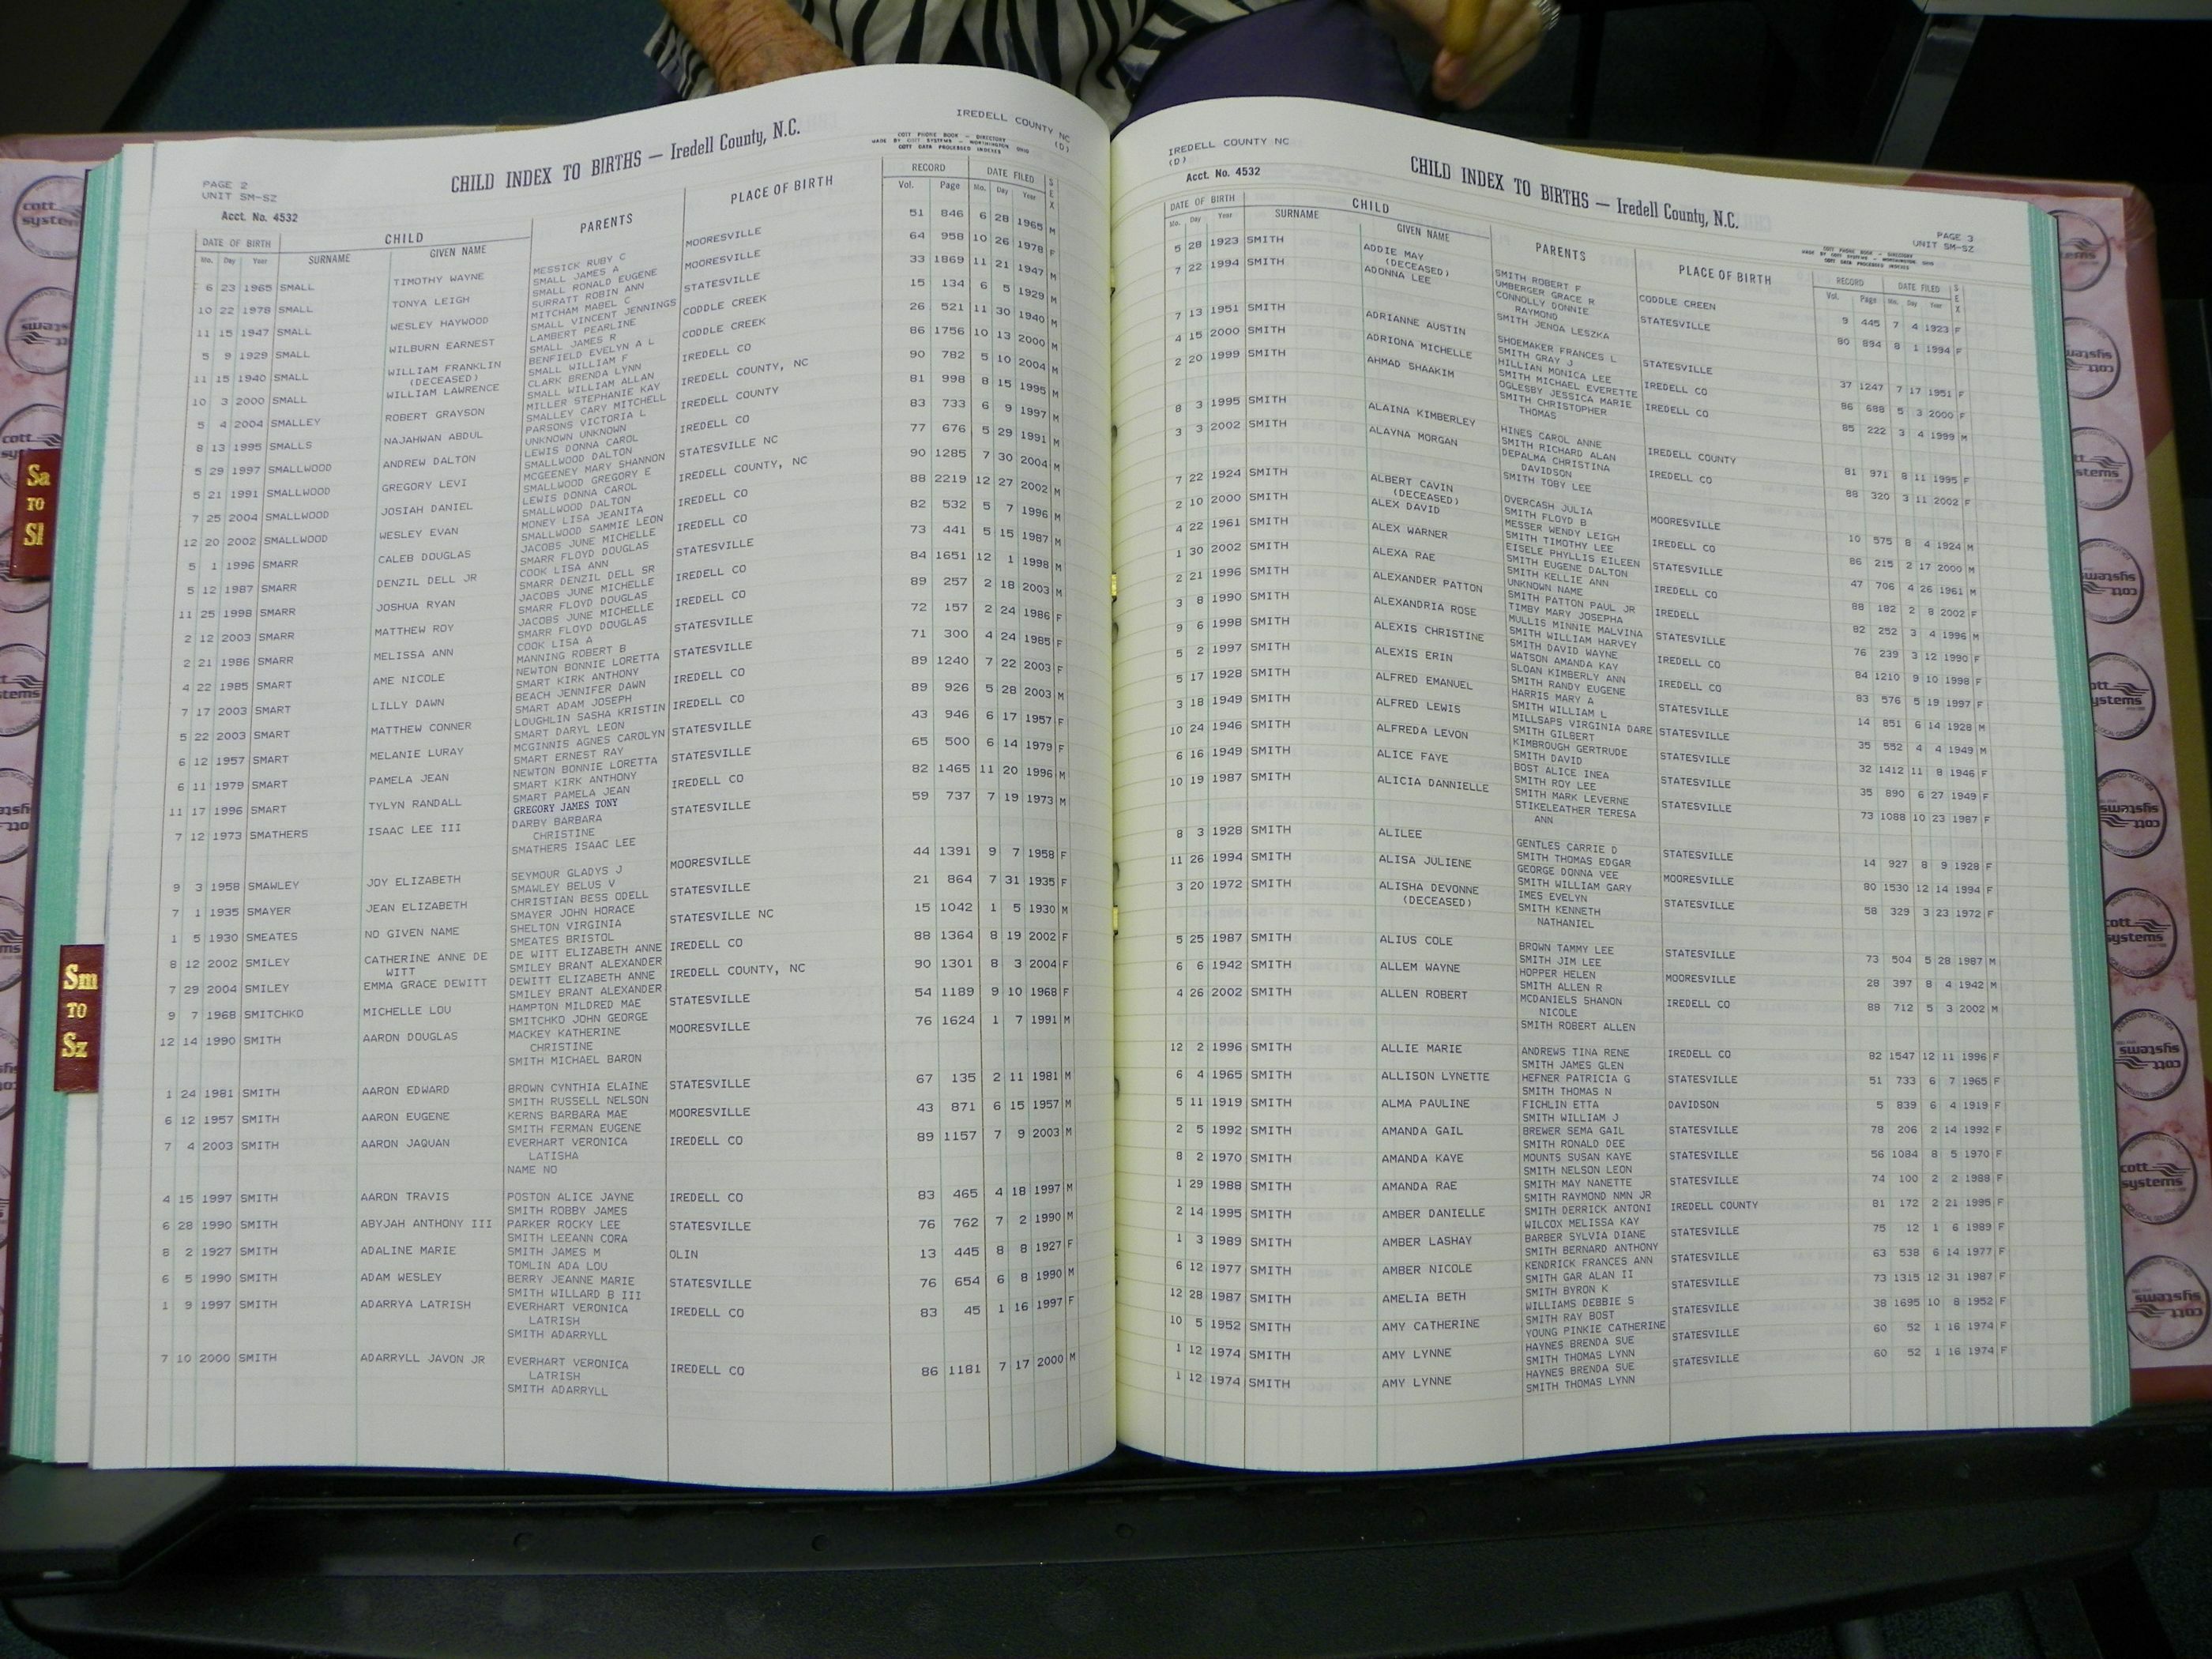 IREDELL COUNTY NC
(D)
CHILD INDEX TO BIRTHS — Iredell County, N.C.
COTT PHONE BOOK — DIRECTORY
MADE BY COTT SYSTEMS — WORTHINGTON OHIO
COTT DATA PROCESSED INDEXES
PAGE 2
UNIT SM-SZ
Acct. No. 4532
DATE OF BIRTH CHILD PARENTS PLACE OF BIRTH RECORD DATE FILED SEX
Mo. Day Year SURNAME GIVEN NAME Vol. Page Mo. Day Year
6 23 1965 SMALL TIMOTHY WAYNE MESSICK RUBY C MOORESVILLE 51 846 6 28 1965 M
SMALL JAMES A
10 22 1978 SMALL TONYA LEIGH SMALL RONALD EUGENE MOORESVILLE 64 958 10 26 1978 F
SURRATT ROBIN ANN
11 15 1947 SMALL WESLEY HAYWOOD MITCHAM MABEL C STATESVILLE 33 1869 11 21 1947 M
SMALL VINCENT JENNINGS
5 9 1929 SMALL WILBURN EARNEST LAMBERT PEARLINE CODDLE CREEK 15 134 6 5 1929 M
SMALL JAMES R
11 15 1940 SMALL WILLIAM FRANKLIN BENFIELD EVELYN A L CODDLE CREEK 26 521 11 30 1940 M
(DECEASED) SMALL WILLIAM F
10 3 2000 SMALL WILLIAM LAWRENCE CLARK BRENDA LYNN IREDELL CO 86 1756 10 13 2000 M
SMALL WILLIAM ALLAN
5 4 2004 SMALLEY ROBERT GRAYSON MILLER STEPHANIE KAY IREDELL COUNTY, NC 90 782 5 10 2004 M
SMALLEY CARY MITCHELL
8 13 1995 SMALLS NAJAHWAN ABDUL PARSONS VICTORIA L IREDELL COUNTY 81 998 8 15 1995 M
UNKNOWN UNKNOWN
5 29 1997 SMALLWOOD ANDREW DALTON LEWIS DONNA CAROL IREDELL CO 83 733 6 9 1997 M
SMALLWOOD DALTON
5 21 1991 SMALLWOOD GREGORY LEVI MCGEENEY MARY SHANNON STATESVILLE NC 77 676 5 29 1991 M
SMALLWOOD GREGORY E
7 25 2004 SMALLWOOD JOSIAH DANIEL LEWIS DONNA CAROL IREDELL COUNTY, NC 90 1285 7 30 2004 M
SMALLWOOD DALTON
12 20 2002 SMALLWOOD WESLEY EVAN MONEY LISA JEANITA IREDELL CO 88 2219 12 27 2002 M
SMALLWOOD SAMMIE LEON
5 1 1996 SMARR CALEB DOUGLAS JACOBS JUNE MICHELLE IREDELL CO 82 532 5 7 1996 M
SMARR FLOYD DOUGLAS
5 12 1987 SMARR DENZIL DELL JR COOK LISA ANN STATESVILLE 73 441 5 15 1987 M
SMARR DENZIL DELL SR
11 25 1998 SMARR JOSHUA RYAN JACOBS JUNE MICHELLE IREDELL CO 84 1651 12 1 1998 M
SMARR FLOYD DOUGLAS
2 12 2003 SMARR MATTHEW ROY JACOBS JUNE MICHELLE IREDELL CO 89 257 2 18 2003 M
SMARR FLOYD DOUGLAS
2 21 1986 SMARR MELISSA ANN COOK LISA A STATESVILLE 72 157 2 24 1986 F
MANNING ROBERT B
4 22 1985 SMART AME NICOLE NEWTON BONNIE LORETTA STATESVILLE 71 300 4 24 1985 F
SMART KIRK ANTHONY
7 17 2003 SMART LILLY DAWN BEACH JENNIFER DAWN IREDELL CO 89 1240 7 22 2003 F
SMART ADAM JOSEPH
5 22 2003 SMART MATTHEW CONNER LOUGHLIN SASHA KRISTIN IREDELL CO 89 926 5 28 2003 M
SMART DARYL LEON
6 12 1957 SMART MELANIE LURAY MCGINNIS AGNES CAROLYN STATESVILLE 43 946 6 17 1957 F
SMART ERNEST RAY
6 11 1979 SMART PAMELA JEAN NEWTON BONNIE LORETTA STATESVILLE 65 500 6 14 1979 F
SMART KIRK ANTHONY
11 17 1996 SMART TYLYN RANDALL SMART PAMELA JEAN IREDELL CO 82 1465 11 20 1996 M
GREGORY JAMES TONY
7 12 1973 SMATHERS ISAAC LEE III DARBY BARBARA STATESVILLE 59 737 7 19 1973 M
CHRISTINE
SMATHERS ISAAC LEE
9 3 1958 SMAWLEY JOY ELIZABETH SEYMOUR GLADYS J MOORESVILLE 44 1391 9 7 1958 F
SMAWLEY BELUS V
7 1 1935 SMAYER JEAN ELIZABETH CHRISTIAN BESS ODELL STATESVILLE 21 864 7 31 1935 F
SMAYER JOHN HORACE
1 5 1930 SMEATES NO GIVEN NAME SHELTON VIRGINIA STATESVILLE NC 15 1042 1 5 1930 M
SMEATES BRISTOL
8 12 2002 SMILEY CATHERINE ANNE DE DE WITT ELIZABETH ANNE IREDELL CO 88 1364 8 19 2002 F
WITT SMILEY BRANT ALEXANDER
7 29 2004 SMILEY EMMA GRACE DEWITT DEWITT ELIZABETH ANNE IREDELL COUNTY, NC 90 1301 8 3 2004 F
SMILEY BRANT ALEXANDER
9 7 1968 SMITCHKO MICHELLE LOU HAMPTON MILDRED MAE STATESVILLE 54 1189 9 10 1968 F
SMITCHKO JOHN GEORGE
12 14 1990 SMITH AARON DOUGLAS MACKEY KATHERINE MOORESVILLE 76 1624 1 7 1991 M
CHRISTINE
SMITH MICHAEL BARON
1 24 1981 SMITH AARON EDWARD BROWN CYNTHIA ELAINE STATESVILLE 67 135 2 11 1981 M
SMITH RUSSELL NELSON
6 12 1957 SMITH AARON EUGENE KERNS BARBARA MAE MOORESVILLE 43 871 6 15 1957 M
SMITH FERMAN EUGENE
7 4 2003 SMITH AARON JAQUAN EVERHART VERONICA IREDELL CO 89 1157 7 9 2003 M
LATISHA
NAME NO
4 15 1997 SMITH AARON TRAVIS POSTON ALICE JAYNE IREDELL CO 83 465 4 18 1997 M
SMITH ROBBY JAMES
6 28 1990 SMITH ABYJAH ANTHONY III PARKER ROCKY LEE STATESVILLE 76 762 7 2 1990 M
SMITH LEEANN CORA
8 2 1927 SMITH ADALINE MARIE SMITH JAMES M OLIN 13 445 8 8 1927 F
TOMLIN ADA LOU
6 5 1990 SMITH ADAM WESLEY BERRY JEANNE MARIE STATESVILLE 76 654 6 8 1990 M
SMITH WILLARD B III
1 9 1997 SMITH ADARRYA LATRISH EVERHART VERONICA IREDELL CO 83 45 1 16 1997 F
LATRISH
SMITH ADARRYLL
7 10 2000 SMITH ADARRYLL JAVON JR EVERHART VERONICA IREDELL CO 86 1181 7 17 2000 M
LATRISH
SMITH ADARRYLL
IREDELL COUNTY NC
(D)
Acct. No. 4532
CHILD INDEX TO BIRTHS — Iredell County, N.C.
PAGE 3
UNIT SM-SZ
COTT PHONE BOOK — DIRECTORY
MADE BY COTT SYSTEMS — WORTHINGTON OHIO
COTT DATA PROCESSED INDEXES
DATE OF BIRTH CHILD PARENTS PLACE OF BIRTH RECORD DATE FILED SEX
Mo. Day Year SURNAME GIVEN NAME Vol. Page Mo. Day Year
5 28 1923 SMITH ADDIE MAY SMITH ROBERT F CODDLE CREEN 9 445 7 4 1923 F
(DECEASED) UMBERGER GRACE R
7 22 1994 SMITH ADONNA LEE CONNOLLY DONNIE STATESVILLE 80 894 8 1 1994 F
RAYMOND
SMITH JENOA LESZKA
7 13 1951 SMITH ADRIANNE AUSTIN SHOEMAKER FRANCES L STATESVILLE 37 1247 7 17 1951 F
SMITH GRAY J
4 15 2000 SMITH ADRIONA MICHELLE HILLIAN MONICA LEE IREDELL CO 86 688 5 3 2000 F
SMITH MICHAEL EVERETTE
2 20 1999 SMITH AHMAD SHAAKIM OGLESBY JESSICA MARIE IREDELL CO 85 222 3 4 1999 M
SMITH CHRISTOPHER
THOMAS
8 3 1995 SMITH ALAINA KIMBERLEY HINES CAROL ANNE IREDELL COUNTY 81 971 8 11 1995 F
SMITH RICHARD ALAN
3 3 2002 SMITH ALAYNA MORGAN DEPALMA CHRISTINA IREDELL CO 88 320 3 11 2002 F
DAVIDSON
SMITH TOBY LEE
7 22 1924 SMITH ALBERT CAVIN OVERCASH JULIA MOORESVILLE 10 575 8 4 1924 M
(DECEASED) SMITH FLOYD B
2 10 2000 SMITH ALEX DAVID MESSER WENDY LEIGH IREDELL CO 86 215 2 17 2000 M
SMITH TIMOTHY LEE
4 22 1961 SMITH ALEX WARNER EISELE PHYLLIS EILEEN STATESVILLE 47 706 4 26 1961 M
SMITH EUGENE DALTON
1 30 2002 SMITH ALEXA RAE SMITH KELLIE ANN IREDELL CO 88 182 2 8 2002 F
UNKNOWN NAME
2 21 1996 SMITH ALEXANDER PATTON SMITH PATTON PAUL JR IREDELL 82 252 3 4 1996 M
TIMBY MARY JOSEPHA
3 8 1990 SMITH ALEXANDRIA ROSE MULLIS MINNIE MALVINA STATESVILLE 76 239 3 12 1990 F
SMITH WILLIAM HARVEY
9 6 1998 SMITH ALEXIS CHRISTINE SMITH DAVID WAYNE IREDELL CO 84 1210 9 10 1998 F
WATSON AMANDA KAY
5 2 1997 SMITH ALEXIS ERIN SLOAN KIMBERLY ANN IREDELL CO 83 576 5 19 1997 F
SMITH RANDY EUGENE
5 17 1928 SMITH ALFRED EMANUEL HARRIS MARY A STATESVILLE 14 851 6 14 1928 M
SMITH WILLIAM L
3 18 1949 SMITH ALFRED LEWIS MILLSAPS VIRGINIA DARE STATESVILLE 35 552 4 4 1949 M
SMITH GILBERT
10 24 1946 SMITH ALFREDA LEVON KIMBROUGH GERTRUDE STATESVILLE 32 1412 11 8 1946 F
SMITH DAVID
6 16 1949 SMITH ALICE FAYE BOST ALICE INEA STATESVILLE 35 890 6 27 1949 F
SMITH ROY LEE
10 19 1987 SMITH ALICIA DANNIELLE SMITH MARK LEVERNE STATESVILLE 73 1088 10 23 1987 F
STIKELEATHER TERESA
ANN
8 3 1928 SMITH ALILEE GENTLES CARRIE D STATESVILLE 14 927 8 9 1928 F
SMITH THOMAS EDGAR
11 26 1994 SMITH ALISA JULIENE GEORGE DONNA VEE MOORESVILLE 80 1530 12 14 1994 F
SMITH WILLIAM GARY
3 20 1972 SMITH ALISHA DEVONNE IMES EVELYN STATESVILLE 58 329 3 23 1972 F
(DECEASED) SMITH KENNETH
NATHANIEL
5 25 1987 SMITH ALIUS COLE BROWN TAMMY LEE STATESVILLE 73 504 5 28 1987 M
SMITH JIM LEE
6 6 1942 SMITH ALLEM WAYNE HOPPER HELEN MOORESVILLE 28 397 8 4 1942 M
SMITH ALLEN R
4 26 2002 SMITH ALLEN ROBERT MCDANIELS SHANON IREDELL CO 88 712 5 3 2002 M
NICOLE
SMITH ROBERT ALLEN
12 2 1996 SMITH ALLIE MARIE ANDREWS TINA RENE IREDELL CO 82 1547 12 11 1996 F
SMITH JAMES GLEN
6 4 1965 SMITH ALLISON LYNETTE HEFNER PATRICIA G STATESVILLE 51 733 6 7 1965 F
SMITH THOMAS N
5 11 1919 SMITH ALMA PAULINE FICHLIN ETTA DAVIDSON 5 839 6 4 1919 F
SMITH WILLIAM J
2 5 1992 SMITH AMANDA GAIL BREWER SEMA GAIL STATESVILLE 78 206 2 14 1992 F
SMITH RONALD DEE
8 2 1970 SMITH AMANDA KAYE MOUNTS SUSAN KAYE STATESVILLE 56 1084 8 5 1970 F
SMITH NELSON LEON
1 29 1988 SMITH AMANDA RAE SMITH MAY NANETTE STATESVILLE 74 100 2 2 1988 F
SMITH RAYMOND NMN JR
2 14 1995 SMITH AMBER DANIELLE SMITH DERRICK ANTONI IREDELL COUNTY 81 172 2 21 1995 F
WILCOX MELISSA KAY
1 3 1989 SMITH AMBER LASHAY BARBER SYLVIA DIANE STATESVILLE 75 12 1 6 1989 F
SMITH BERNARD ANTHONY
6 12 1977 SMITH AMBER NICOLE KENDRICK FRANCES ANN STATESVILLE 63 538 6 14 1977 F
SMITH GAR ALAN II
12 28 1987 SMITH AMELIA BETH SMITH BYRON K STATESVILLE 73 1315 12 31 1987 F
WILLIAMS DEBBIE S
10 5 1952 SMITH AMY CATHERINE SMITH RAY BOST STATESVILLE 38 1695 10 8 1952 F
YOUNG PINKIE CATHERINE
1 12 1974 SMITH AMY LYNNE HAYNES BRENDA SUE STATESVILLE 60 52 1 16 1974 F
SMITH THOMAS LYNN
1 12 1974 SMITH AMY LYNNE HAYNES BRENDA SUE STATESVILLE 60 52 1 16 1974 F
SMITH THOMAS LYNN
Sa
TO
Sl
Sm
TO
Sz
cott
systems